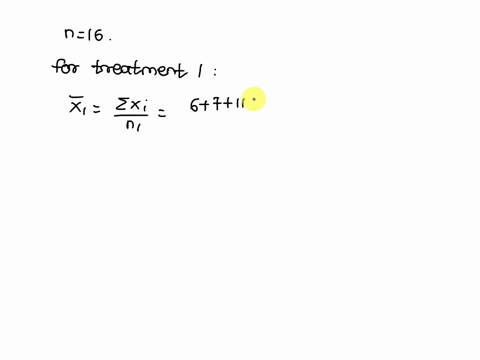 n=16.
for treatment 1:
x̄₁ = Σxi/n₁ = 6+7+11